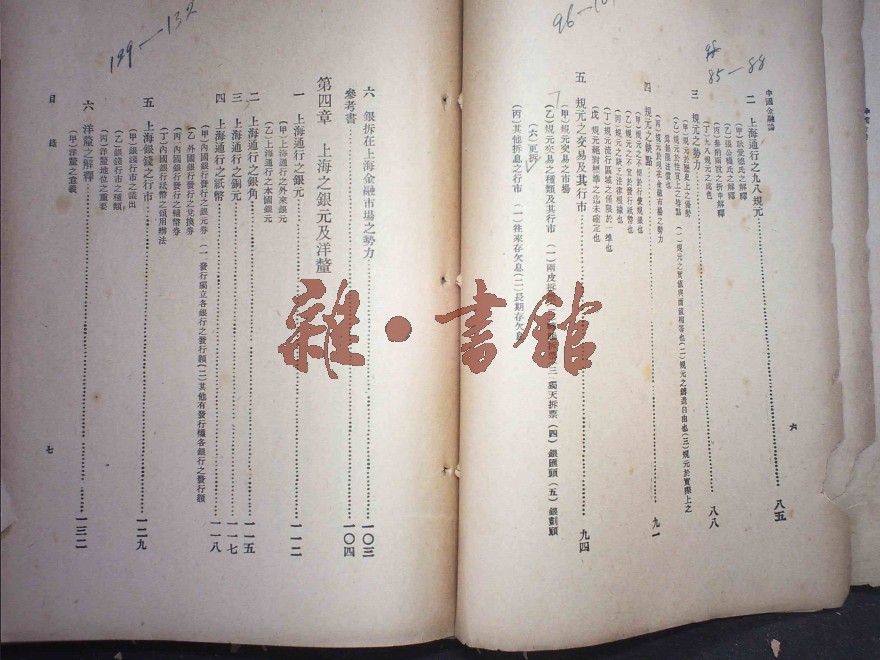 96—10
85—88
中國金融論
二 上海通行之九八規元……八五
(甲)耿愛德氏之解釋
(乙)張公權氏之解釋
(丙)參酌兩說之折中解釋
(丁)九八規元之成色
三 規元之勢力……八八
(甲)規元於歷史上之優勢
(乙)規元於性質上之特點 (一)規元之實值與面值相等也(二)規元之鑄造自由也(三)規元於實際上之
常無限法貨也
(丙)規元於現在金融市場之勢力
四 規元之缺點……九一
(甲)規元之不宜於發行紙幣也
(丙)規元之缺乏法律根據也
(丁)規元流行區域之僅限於一埠也
(戊)規元絕對標準之迄未確定也
五 規元之交易及其行市……九四
(甲)規元交易之市場
(乙)規元交易之種類及其行市 (一)兩皮拆
(三)獨天拆票(四)銀匯頭(五)銀劃頭
(六)更拆
(丙)其他拆息之行市 (一)往來存欠息(二)長期存欠息
六
129—132
六 銀拆在上海金融市場之勢力……一〇三
參考書……一〇四
第四章 上海之銀元及洋釐
一 上海通行之銀元……一一二
(甲)上海通行之外來銀元
(乙)上海通行之本國銀元
二 上海通行之銀角……一一五
三 上海通行之銅元……一一七
四 上海通行之紙幣……一一八
(甲)內國銀行發行之銀元券 (一)發行獨立各銀行之發行額(二)其他有發行權各銀行之發行額
(乙)外國銀行發行之兌換券
(丙)內國銀行發行之輔幣券
(丁)內國銀行紙幣之領用辦法
五 上海銀錢之行市……一二九
(甲)銀錢行市之議出
(乙)銀錢行市之種類
(丙)洋釐地位之重要
六 洋釐之解釋……一三二
(甲)洋釐之意義
目 錄
七
雜·書館